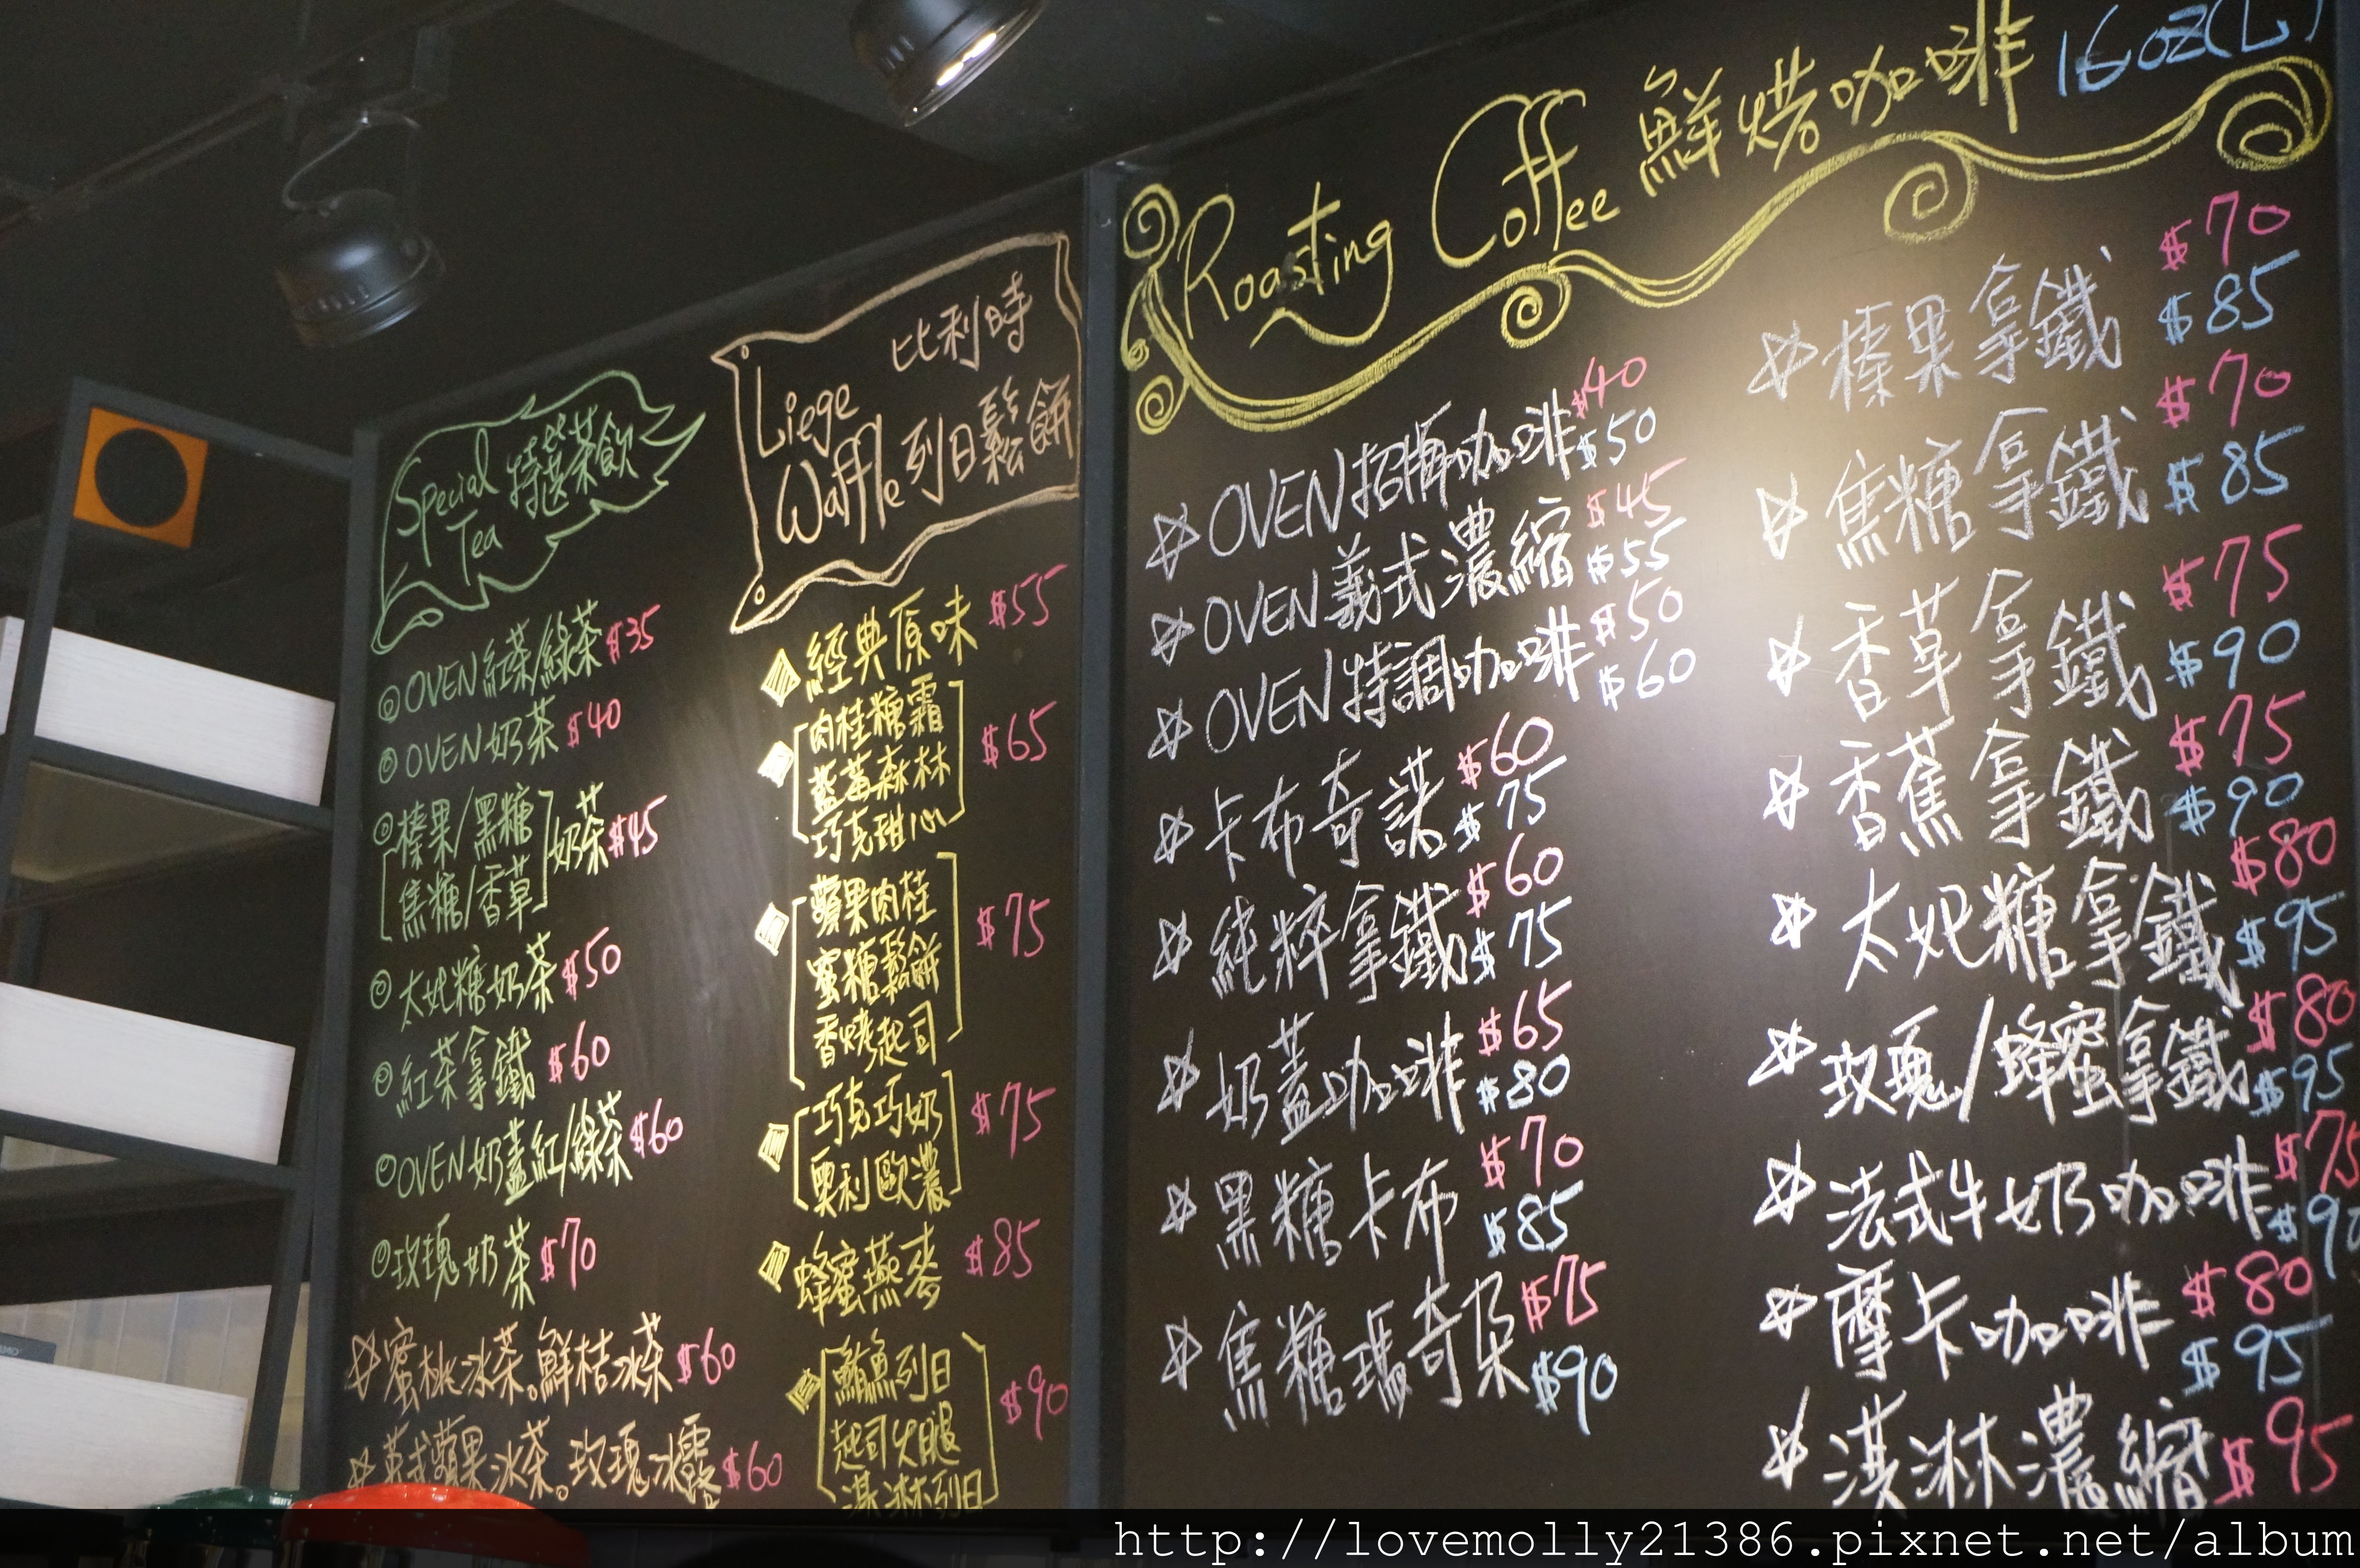 Special 特選茶飲
Tea
OVEN 紅茶/綠茶 $35
OVEN 奶茶 $40
榛果/黑糖
焦糖/香草
奶茶 $45
太妃糖奶茶 $50
紅茶拿鐵 $60
OVEN 奶蓋紅/綠茶 $60
玫瑰奶茶 $70
蜜桃冰茶。鮮桔冰茶 $60
英式蘋果冰茶。玫瑰冰露 $60
Liege 比利時
Waffle 列日鬆餅
經典原味 $55
肉桂糖霜
藍莓森林
巧克甜心
$65
蘋果肉桂
蜜糖鬆餅
香烤起司
$75
巧克巧奶
奧利歐濃
$75
蜂蜜燕麥 $85
鮪魚列日
起司火腿
淇淋列日
$90
Roasting Coffee 鮮烤咖啡 16oz(L)
OVEN招牌咖啡 $40
$50
OVEN義式濃縮 $45
$55
OVEN特調咖啡 $50
$60
卡布奇諾 $60
$75
純粹拿鐵 $60
$75
奶蓋咖啡 $65
$80
黑糖卡布 $70
$85
焦糖瑪奇朵 $75
$90
榛果拿鐵 $70
$85
焦糖拿鐵 $70
$85
香草拿鐵 $75
$90
香蕉拿鐵 $75
$90
太妃糖拿鐵 $80
$95
玫瑰/蜂蜜拿鐵 $80
$95
法式牛奶咖啡 $75
$90
摩卡咖啡 $80
$95
淇淋濃縮 $95
http://lovemolly21386.pixnet.net/album